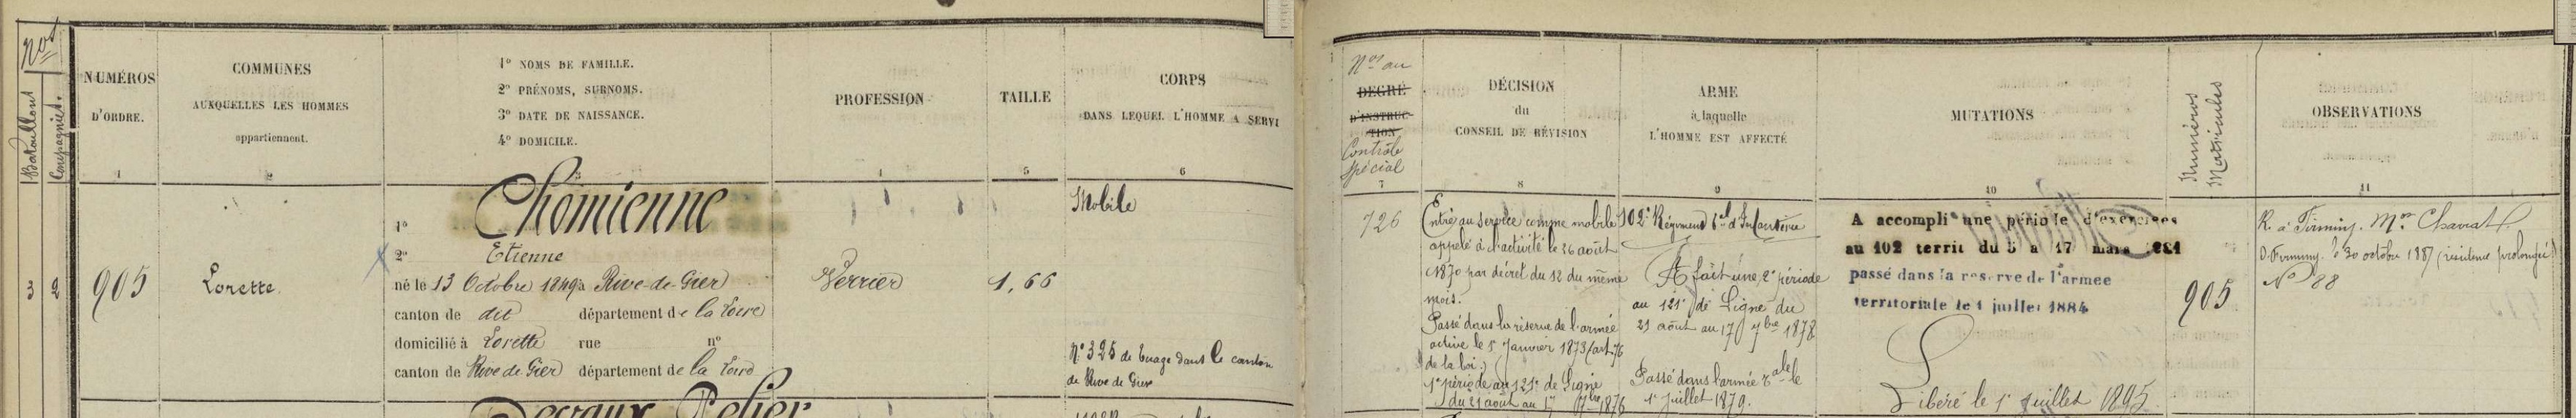 Nos
Bataillons
Compagnies.
NUMÉROS
D'ORDRE.
1
COMMUNES
AUXQUELLES LES HOMMES
appartiennent.
2
1° NOMS DE FAMILLE.
2° PRÉNOMS, SURNOMS.
3° DATE DE NAISSANCE.
4° DOMICILE.
3
PROFESSION
4
TAILLE
5
CORPS
DANS LEQUEL L'HOMME A SERVI
6
Nos au
DEGRÉ
D'INSTRUC-
TION
Contrôle
spécial
7
DÉCISION
du
CONSEIL DE RÉVISION
8
ARME
à laquelle
L'HOMME EST AFFECTÉ
9
MUTATIONS
10
Numéros
Matricules
OBSERVATIONS
11
3
2
905
Lorette
1° Chomienne
2° Etienne
né le 13 Octobre 1849 à Rive-de-Gier
canton de dit département de la Loire
domicilié à Lorette rue n°
canton de Rive de Gier département de la Loire
Verrier
1,66
Mobile
N° 325 de tirage dans le canton
de Rive de Gier
726
Entré au service comme mobile
appelé à l'activité le 26 août
1870 par décret du 12 du même
mois.
Passé dans la réserve de l'armée
active le 1r Janvier 1873 (art. 76
de la loi.)
1e période au 121e de Ligne
du 21 août au 17 7bre 1876
102e Régiment tal d'Infanterie
A fait une 2e période
au 121e de Ligne du
21 août au 17 7bre 1878
Passé dans l'armée tale le
1r juillet 1879.
A accompli une période d'exercices
au 102 territ du 5 a 17 mars 1881
passé dans la reserve de l'armee
territoriale le 1 juillet 1884
Libéré le 1r Juillet 1895
905
R. à Firminy. Mon
D. Firminy le 30 octobre 1887 (résidence prolongée)
No 88
Decraux Pelier